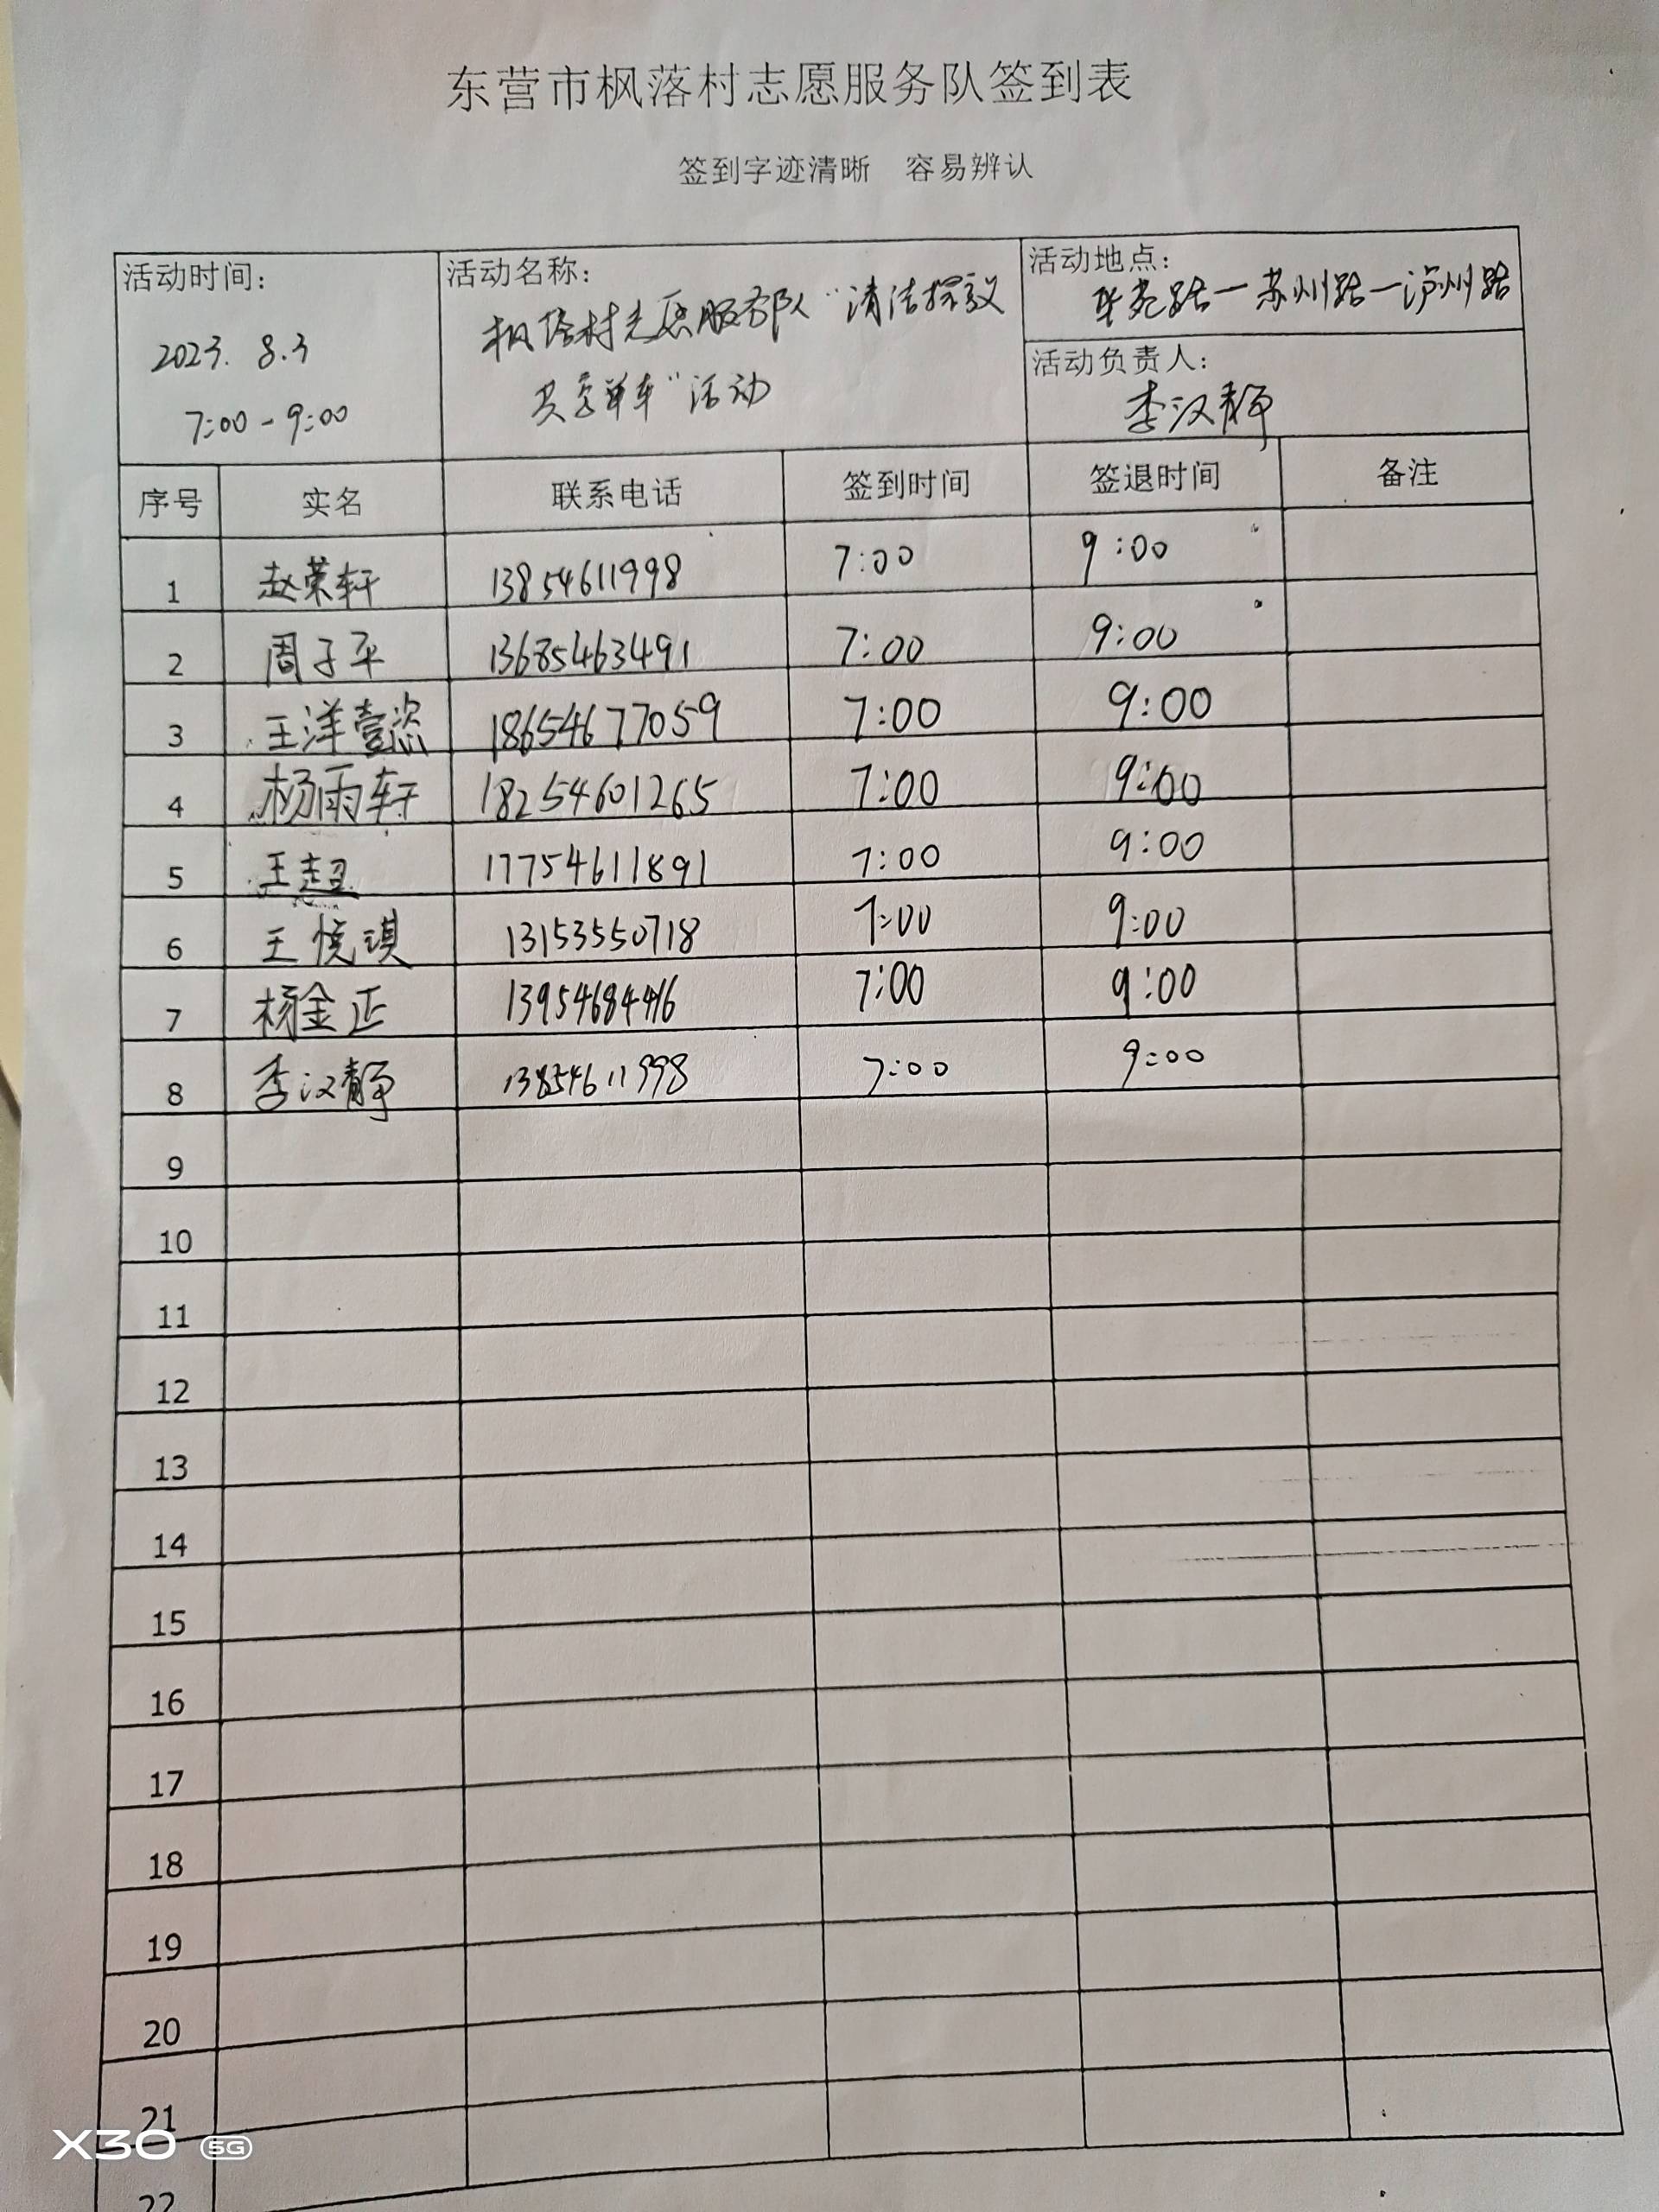 东营市枫落村志愿服务队签到表
签到字迹清晰 容易辨认
活动时间:
2023. 8.3
7:00-9:00
活动名称:
枫落村志愿服务队"清洁
共享单车"活动
活动地点:
苏州路一泸州路
活动负责人:
李汉静
序号 实名 联系电话 签到时间 签退时间 备注
1 赵荣轩 13854611998 7:00 9:00
2 周子平 13685463491 7:00 9:00
3 王洋壹恣 18654677059 7:00 9:00
4 杨雨轩 18254601265 7:00 9:00
5 王超 17754611891 7:00 9:00
6 王悦琪 13153550718 7:00 9:00
7 杨金正 13954684416 7:00 9:00
8 李汉静 13854611998 7:00 9:00
9
10
11
12
13
14
15
16
17
18
19
20
21
22
X30 5G